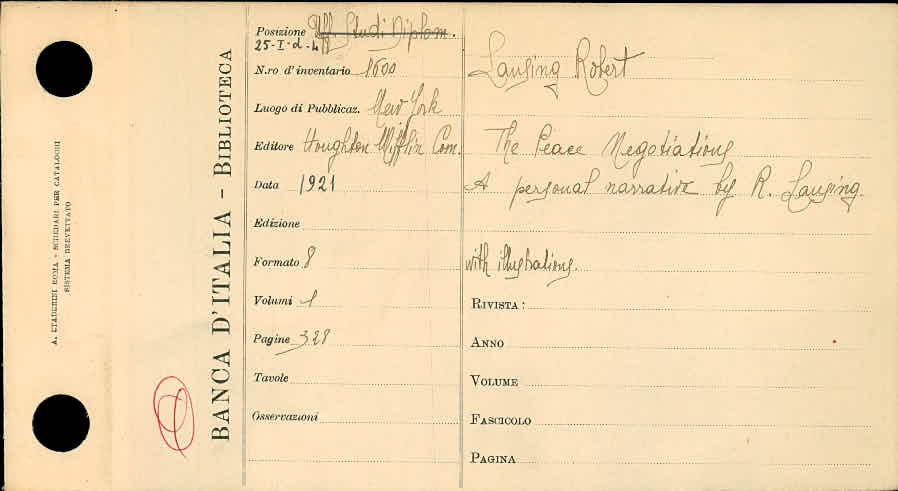 A. STADERINI ROMA - SCHEDARI PER CATALOGHI
SISTEMA BREVETTATO
BANCA D'ITALIA - BIBLIOTECA
Posizione Uff Studi Diplom.
25-I-d-4
N.ro d'inventario 1600
Luogo di Pubblicaz. New York
Editore Houghton Mifflin Com.
Data 1921
Edizione
Formato 8
Volumi 1
Pagine 328
Tavole
Osservazioni
Lansing Robert
The Peace Negotiations
A personal narrative by R. Lansing.
with illustrations.
RIVISTA:
ANNO
VOLUME
FASCICOLO
PAGINA